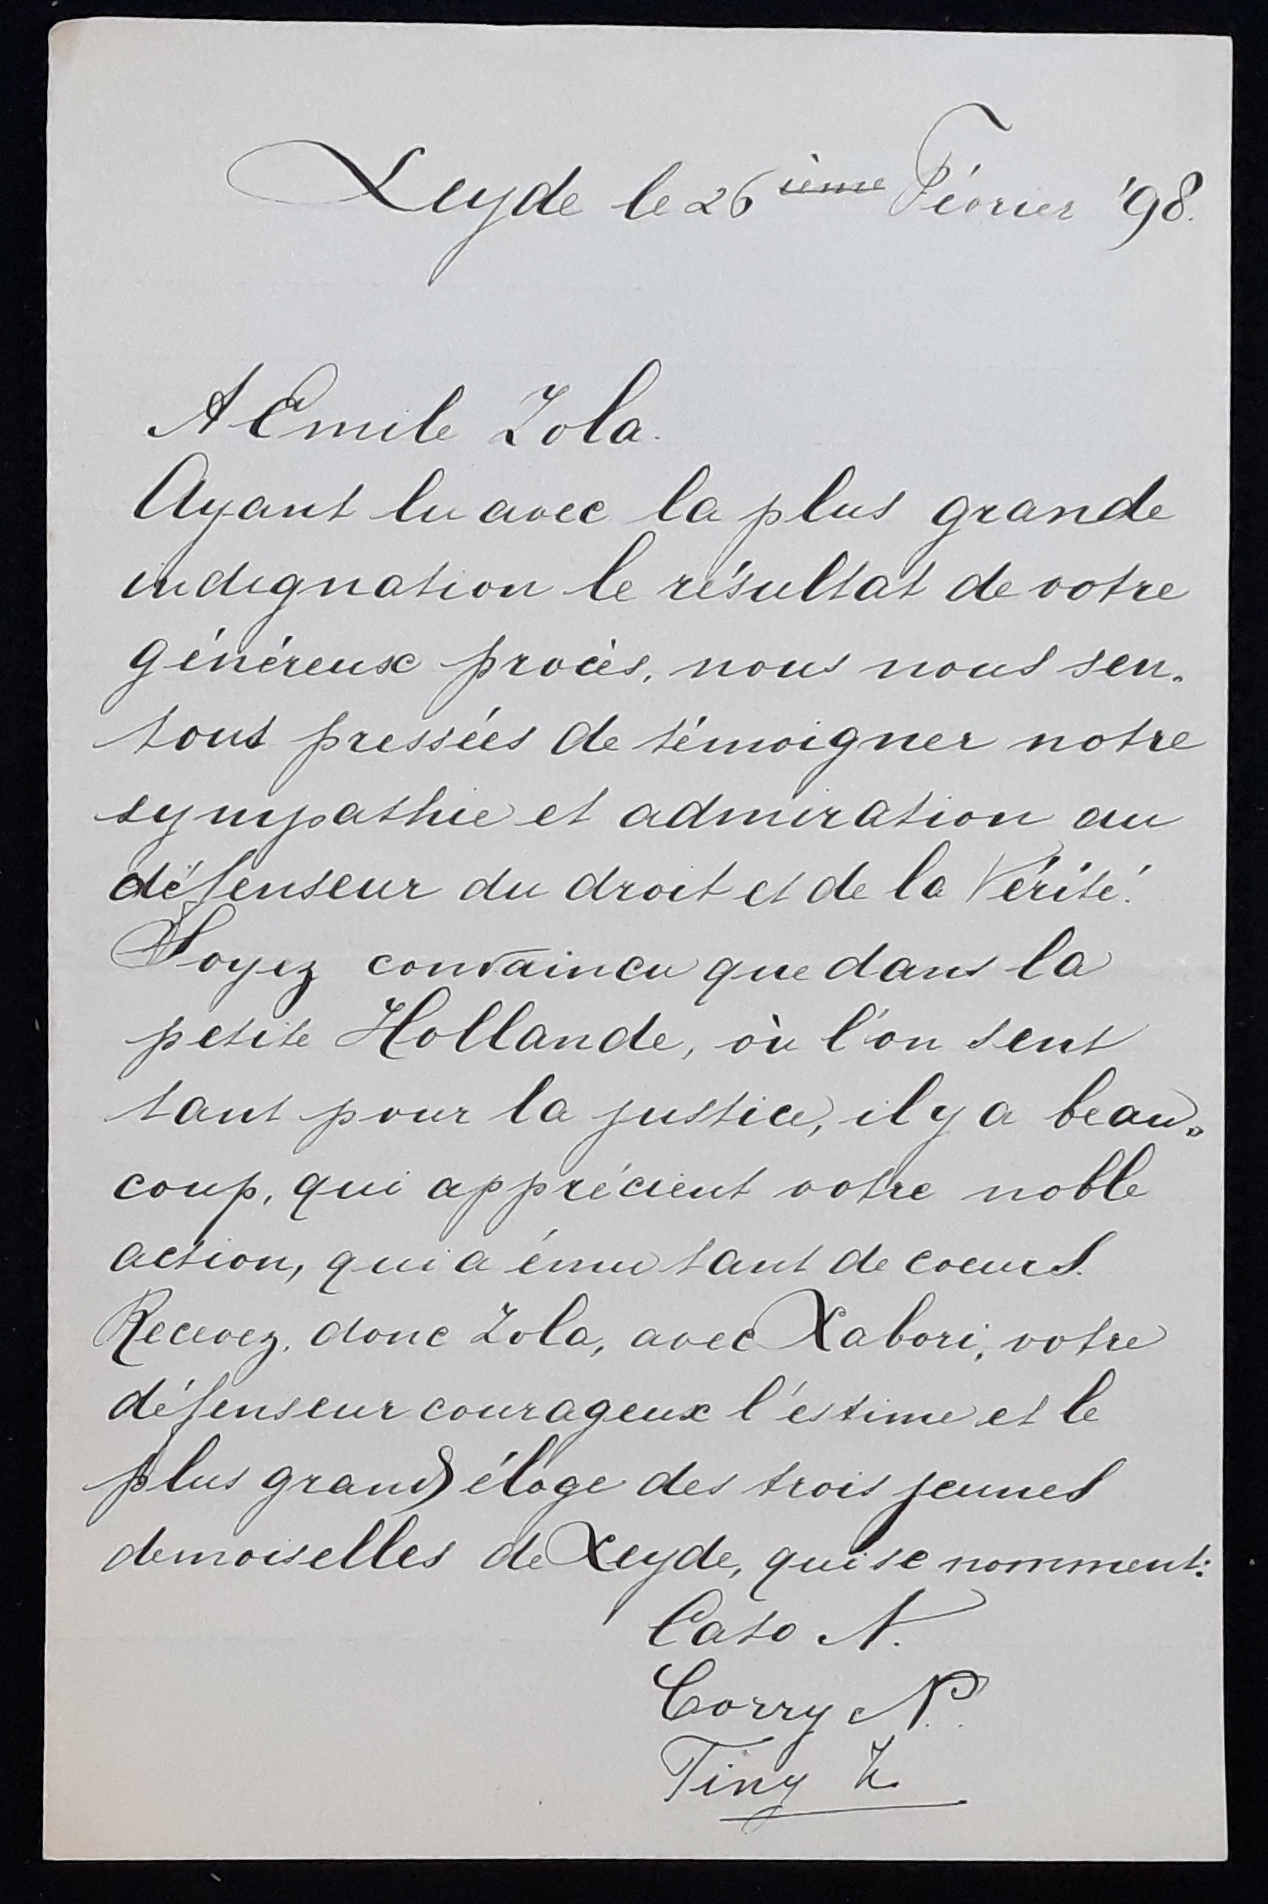 Leyde le 26 ième Février '98.
A Emile Zola.
Ayant lu avec la plus grande
indignation le résultat de votre
généreux procès, nous nous sen-
tons pressées de témoigner notre
sympathie et admiration au
défenseur du droit et de la Vérité.
Soyez convaincu que dans la
petite Hollande, où l'on sent
tant pour la justice, il y a beau-
coup, qui apprécient votre noble
action, qui a ému tant de coeurs.
Recevez, donc Zola, avec Labori, votre
défenseur courageux l'estime et le
plus grand éloge des trois jeunes
demoiselles de Leyde, qui se nomment:
Cato N.
Corry N.P.
Tiny Z.